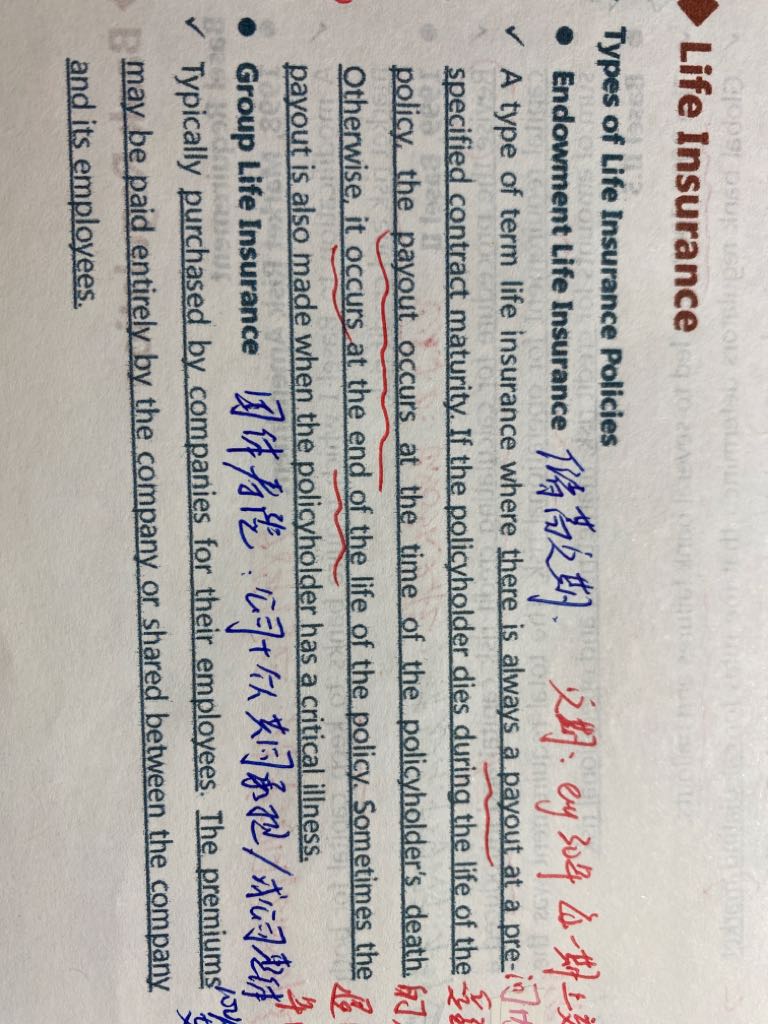 Life Insurance
Types of Life Insurance Policies
● Endowment Life Insurance 储蓄定期.
定期: eg 30年
✓ A type of term life insurance where there is always a payout at a pre-
specified contract maturity. If the policyholder dies during the life of the
policy, the payout occurs at the time of the policyholder's death.
Otherwise, it occurs at the end of the life of the policy. Sometimes the
payout is also made when the policyholder has a critical illness.
● Group Life Insurance 团体寿险: 公司+个人共同承担/或公司
✓ Typically purchased by companies for their employees. The premiums
may be paid entirely by the company or shared between the company
and its employees.